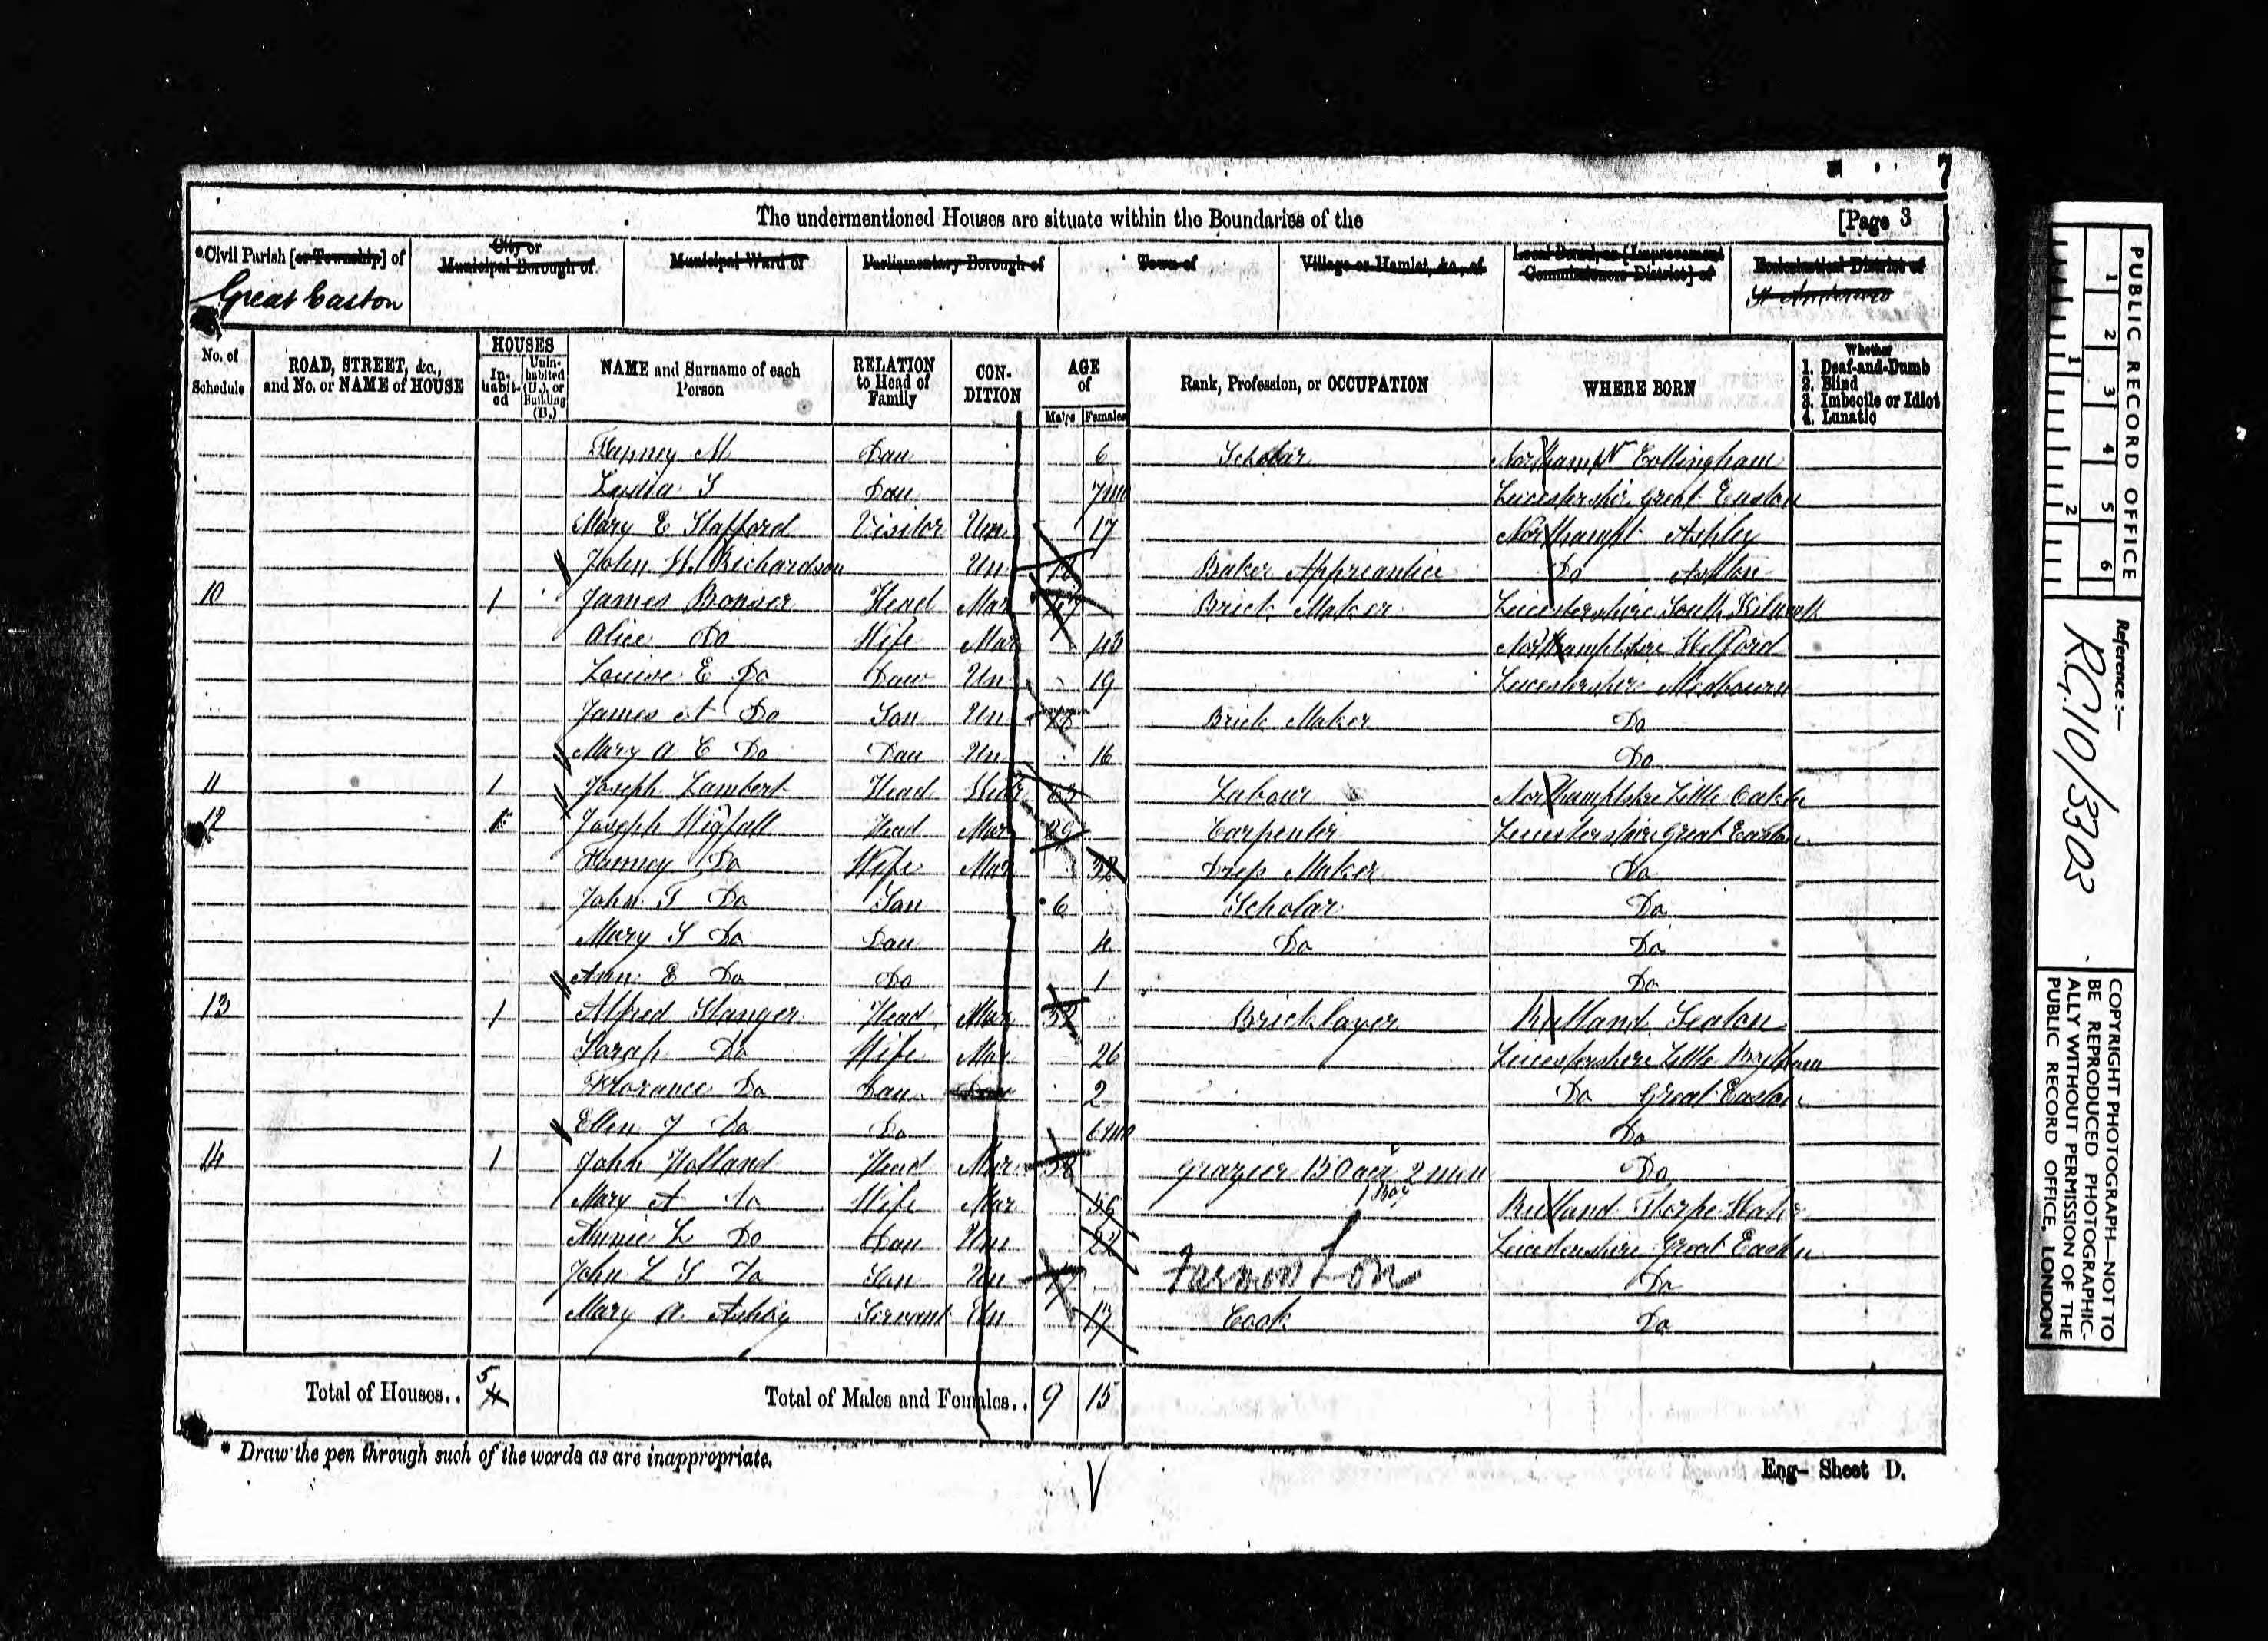 7
The undermentioned Houses are situate within the Boundaries of the [Page 3
*Civil Parish [or Township] of
City or Municipal Borough of
Municipal Ward of
Parliamentary Borough of
Town of
Village or Hamlet, &c., of
Local Board, or [Improvement Commissioners District] of
Ecclesiastical District of
Great Easton
No. of Schedule
ROAD, STREET, &c., and No. or NAME of HOUSE
HOUSES
In-habit-ed
Unin-habited (U.), or Building (B.)
NAME and Surname of each Person
RELATION to Head of Family
CON-DITION
AGE of
Males Females
Rank, Profession, or OCCUPATION
WHERE BORN
Whether
1. Deaf-and-Dumb
2. Blind
3. Imbecile or Idiot
4. Lunatic
Fanney M Dau 6 Scholar Cottingham
S Dau 7 mo Leicestershir Great Easton
Mary E Stafford Visitor Um 17 Northampt Ashley
John W Richardson Un Baker Do
10 1 James Bonser Head Mar 47 Brick Maker Leicestershire South
Alice Do Wife Mar 43 Welford
Louise E Do Daw Un 19 Leicestershire Medbourn
James Do Son Un Brick Maker Do
Mary A E Do Dau Un 16 Do
11 1 Joseph Lambert Head 63 Labour Little
12 1 Joseph Wigfall Head Mar 29 Carpenter Leicestershire Great Easton
Fanney Do Wife Mar 32 Dress Maker Do
John T Do Son 6 Scholar Do
Mary S Do Dau 4 Do Do
Ann E Do Do 1 Do
13 1 Alfred Stanger Head Mar Bricklayer Rutland Seaton
Sarah Do Wife Mar 26 Leicestershire Little
Florance Do Dau 2 Do Great Easton
Ellen J Do Do 6 mo Do
14 1 John Holland Head Mar 58 grazier 150 acr 2 men Do
1 Boy
Mary A Do Wife Mar 56 Rutland Thorpe
Annie L Do Dau Um 22 Great Easton
John L S Do Son Un Do
Mary A Servant Un 17 Cook Do
Total of Houses.. 5 4 Total of Males and Females.. 9 15
* Draw the pen through such of the words as are inappropriate.
Eng- Sheet D.
PUBLIC RECORD OFFICE
1 2 3 4 5 6
1 2
Reference :-
R.G. 10/3303
COPYRIGHT PHOTOGRAPH—NOT TO
BE REPRODUCED PHOTOGRAPHIC-
ALLY WITHOUT PERMISSION OF THE
PUBLIC RECORD OFFICE, LONDON